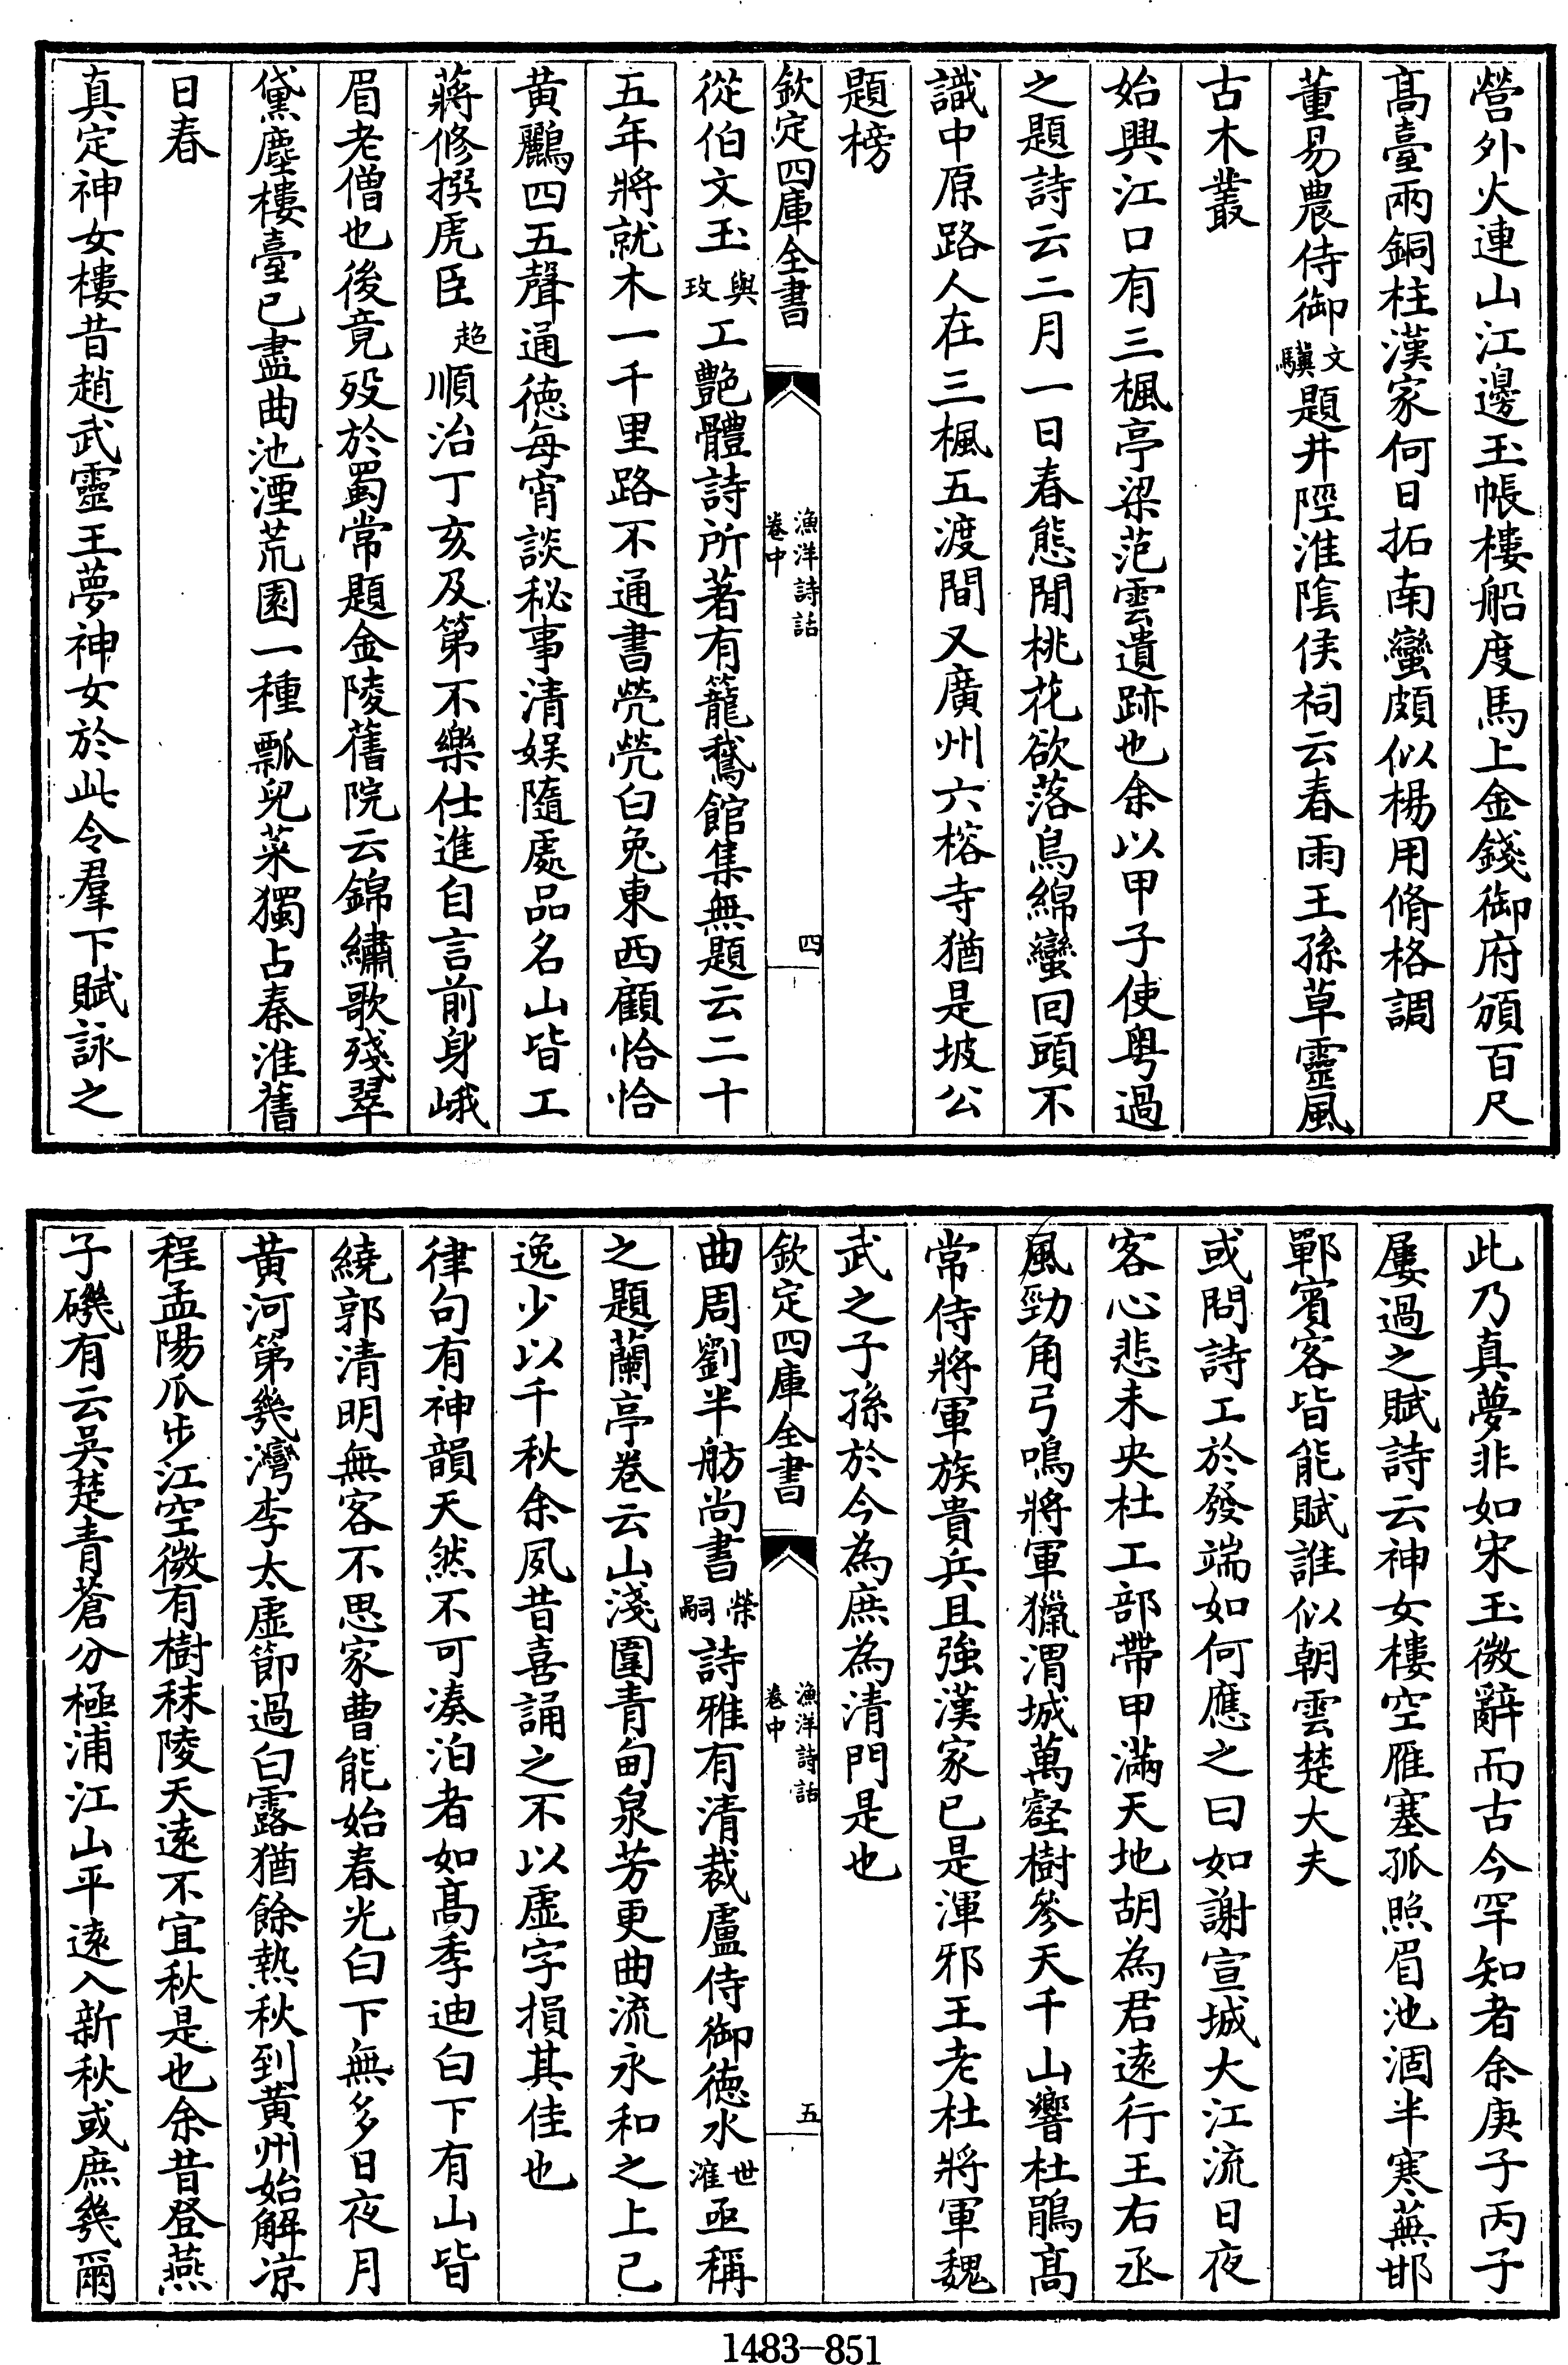 營外火連山江邊玉帳樓船度馬上金錢御府頒百尺
髙臺兩銅柱漢家何日拓南蠻頗似楊用脩格調
董易農侍御文驥題井陘淮陰侯祠云春雨王孫草靈風
古木叢
始興江口有三楓亭梁范雲遺跡也余以甲子使粤過
之題詩云二月一日春態閒桃花欲落鳥綿蠻回頭不
識中原路人在三楓五渡間又廣州六榕寺猶是坡公
題榜
欽定四庫全書
漁洋詩話
卷中
四
從伯文玉與玫工艷體詩所著有籠鵞館集無題云二十
五年將就木一千里路不通書煢煢白兔東西顧恰恰
黄鸝四五聲通徳每宵談秘事清娱隨處品名山皆工
蔣修撰虎臣超順治丁亥及第不樂仕進自言前身峨
眉老僧也後竟殁於蜀常題金陵舊院云錦繡歌殘翠
黛塵樓臺已盡曲池湮荒園一種瓢兒菜獨占秦淮舊
日春
真定神女樓昔趙武靈王夢神女於此令羣下賦詠之
此乃真夢非如宋玉微辭而古今罕知者余庚子丙子
屢過之賦詩云神女樓空雁塞孤照眉池涸半寒蕪邯
鄲賓客皆能賦誰似朝雲楚大夫
或問詩工於發端如何應之曰如謝宣城大江流日夜
客心悲未央杜工部帶甲滿天地胡為君逺行王右丞
風勁角弓鳴將軍獵渭城萬壑樹參天千山響杜鵑髙
常侍將軍族貴兵且強漢家已是渾邪王老杜將軍魏
武之子孫於今為庶為清門是也
欽定四庫全書
漁洋詩話
卷中
五
曲周劉半舫尚書榮嗣詩雅有清裁盧侍御徳水世㴶亟稱
之題蘭亭卷云山淺圍青甸泉芳更曲流永和之上已
逸少以千秋余夙昔喜誦之不以虚字損其佳也
律句有神韻天然不可凑泊者如髙季迪白下有山皆
繞郭清明無客不思家曹能始春光白下無多日夜月
黄河第幾灣李太虚節過白露猶餘熱秋到黄州始解凉
程孟陽瓜歩江空微有樹秣陵天逺不宜秋是也余昔登燕
子磯有云吳楚青蒼分極浦江山平逺入新秋或庶幾爾
1483-851